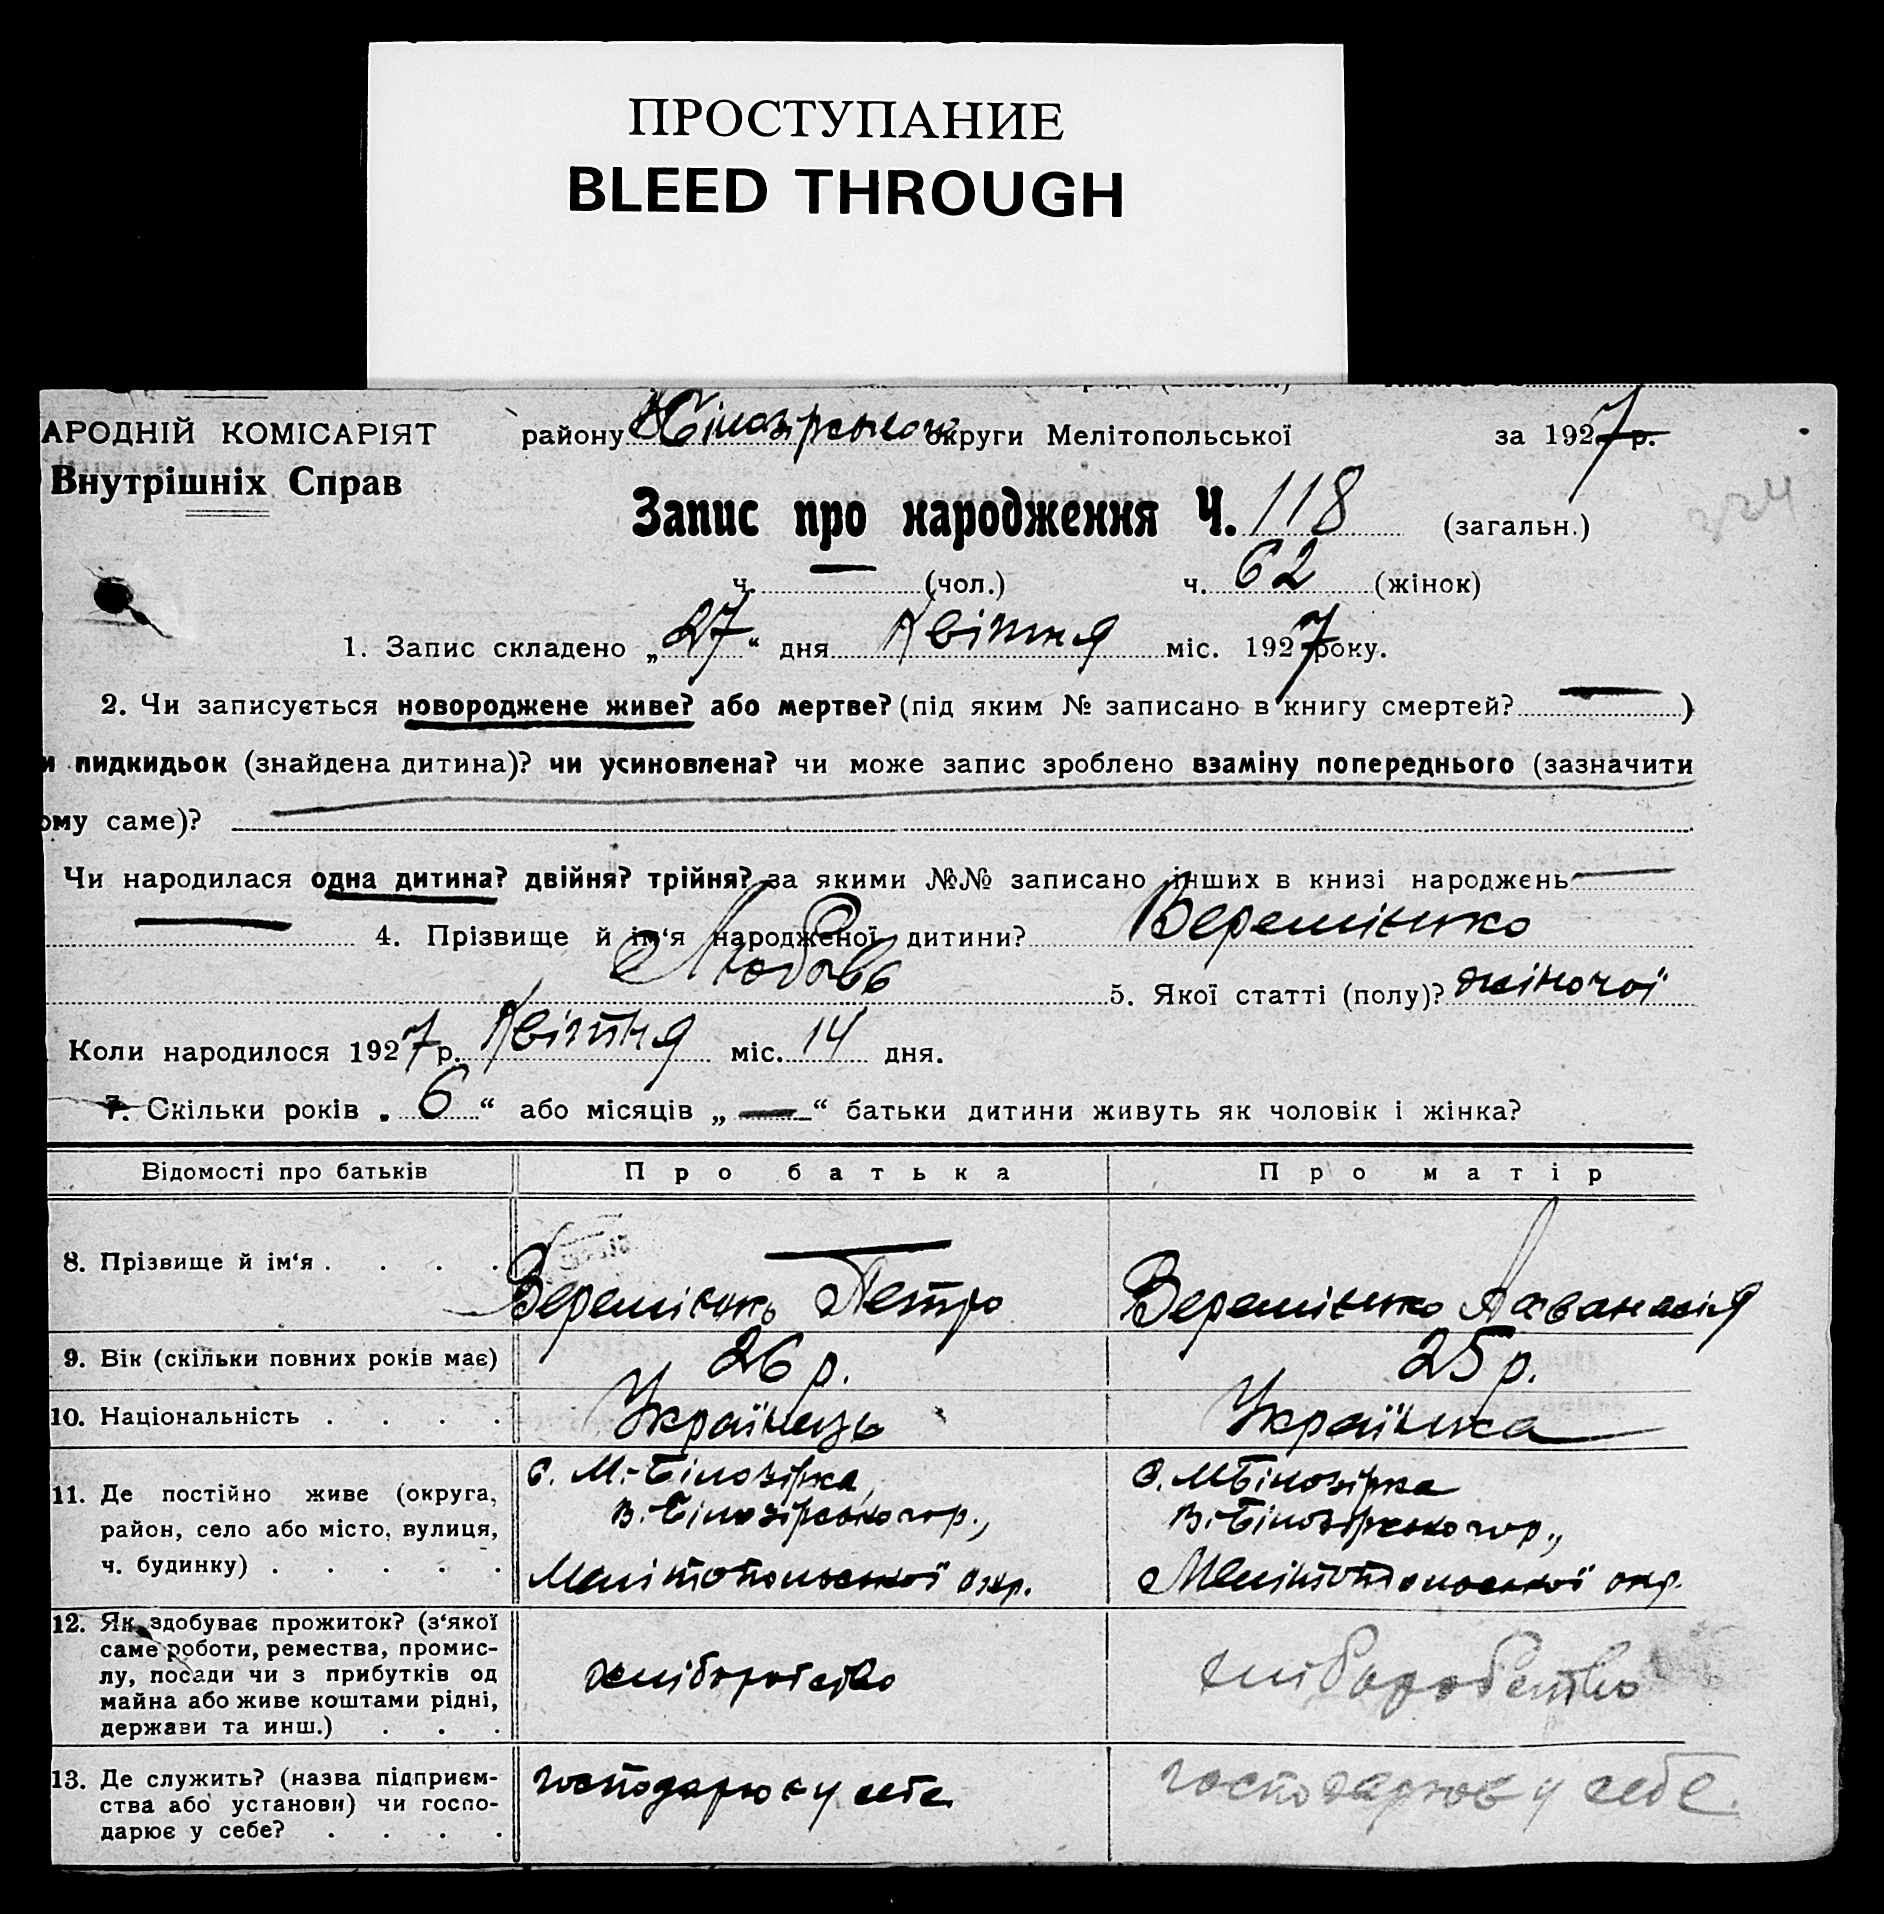 ПРОСТУПАНИЕ
BLEED THROUGH
АРОДНІЙ КОМІСАРІЯТ району округи Мелітопольської за 1927 р.
Внутрішніх Справ
Запис про народження Ч. 118 (загальн.)
224
ч. — (чол.) ч. 62 (жінок)
1. Запис складено „27“ дня Квітня міс. 1927 року.
2. Чи записується новороджене живе? або мертве? (під яким № записано в книгу смертей? — )
и пидкидьок (знайдена дитина)? чи усиновлена? чи може запис зроблено взаміну попереднього (зазначити
ому саме)?
Чи народилася одна дитина? двійня? трійня? за якими №№ записано інших в книзі народжень —
— 4. Прізвище й ім‘я народженої дитини? Веремієнко
Любовь 5. Якої статті (полу)? жіночої
Коли народилося 1927 р. Квітня міс. 14 дня.
7. Скільки років „ 6 “ або місяців „ — “ батьки дитини живуть як чоловік і жінка?
Відомості про батьків Про батька Про матір
8. Прізвище й ім‘я . . . . Веремієнко Петро Веремієнко
9. Вік (скільки повних років має) 26 р. 25 р.
10. Національність . . . . Українець Українка
11. Де постійно живе (округа, район, село або місто, вулиця, ч. будинку) . . . . .
с. М.-Білозірка, с. М Білозірка
В.-Білозірського р., В.-Білозірського р.,
Мелітопольської окр. Мелітопольської окр.
12. Як здобуває прожиток? (з‘якої
саме роботи, ремества, промис-
лу, посади чи з прибутків од
майна або живе коштами рідні,
держави та инш.) . . .
хліборобство хліборобство
13. Де служить? (назва підприєм-
ства або установи) чи госпо-
дарює у себе? . . . .
господарює у себе господарює у себе.